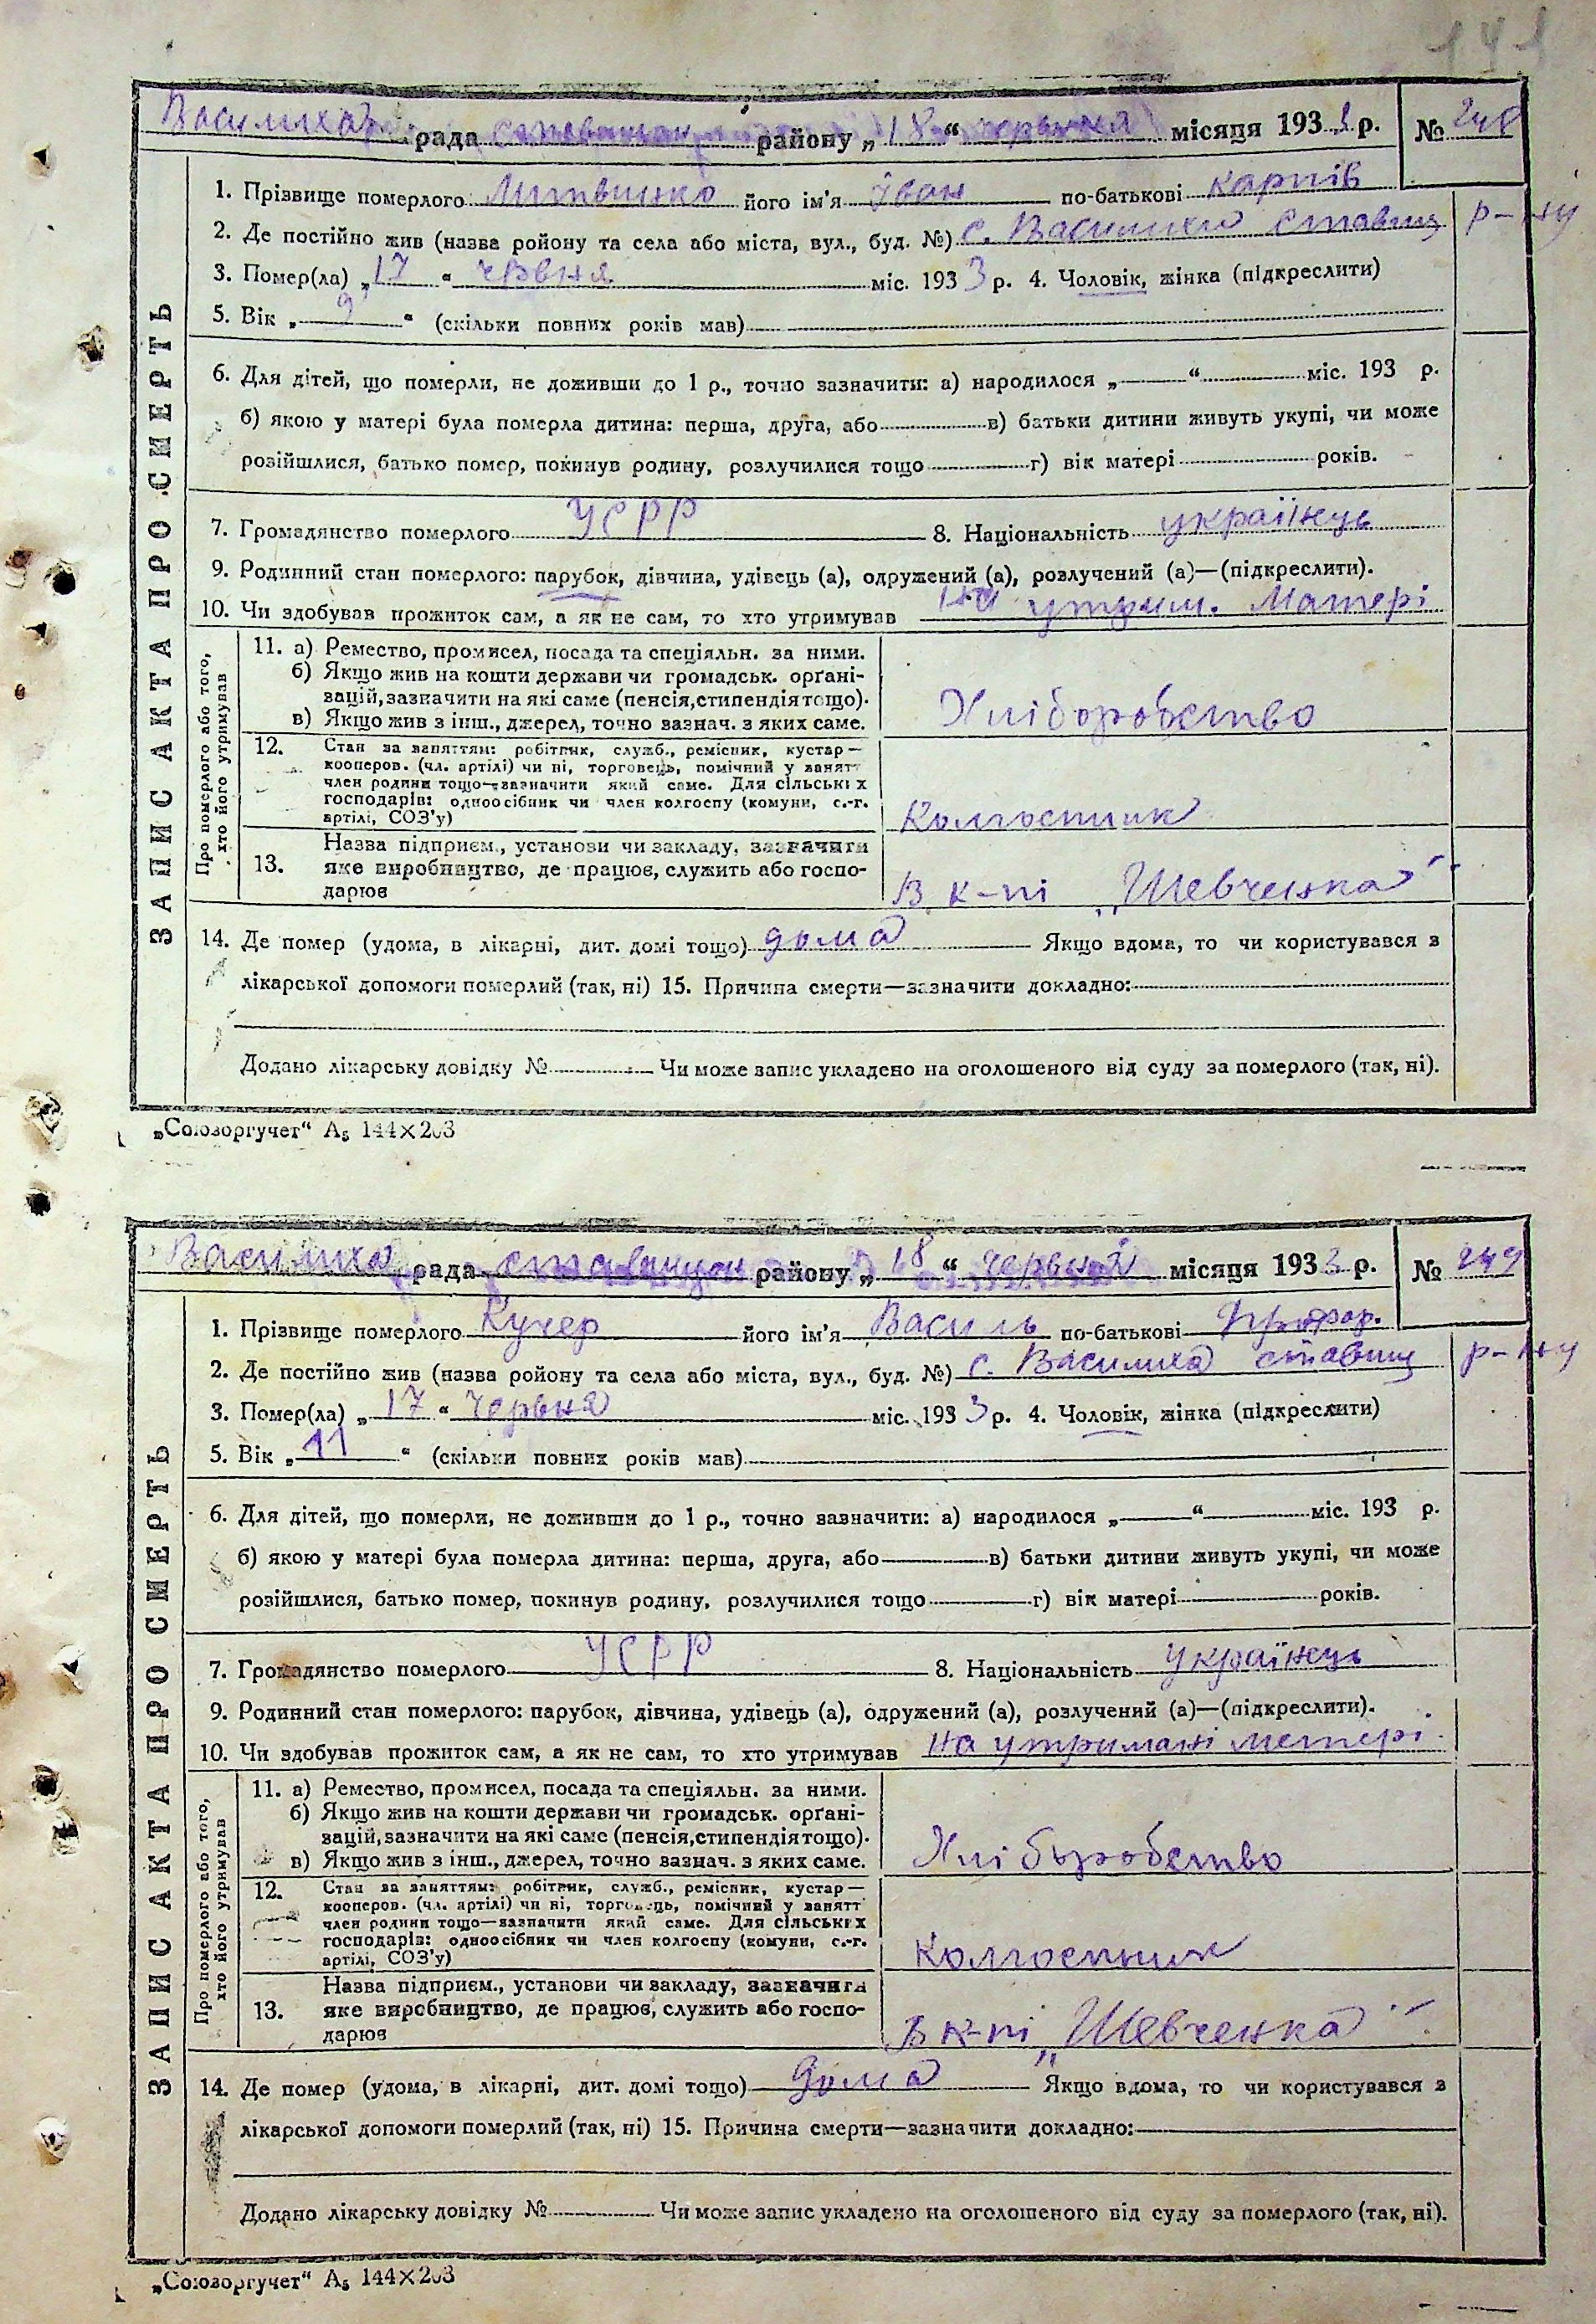 141
Василиха рада ставищан району „18“ червня місяця 1933 р. № 248
ЗАПИС АКТА ПРО СМЕРТЬ
1. Прізвище померлого Литвинко його ім'я Іван по-батькові Карпів
2. Де постійно жив (назва ройону та села або міста, вул., буд. №) с. Василиха Ставищ р-ну
3. Помер(ла) „17“ червня міс. 1933 р. 4. Чоловік, жінка (підкреслити)
5. Вік „9“ (скільки повних років мав)
6. Для дітей, що померли, не доживши до 1 р., точно зазначити: а) народилося „ “ міс. 193 р.
б) якою у матері була померла дитина: перша, друга, або в) батьки дитини живуть укупі, чи може
розійшлися, батько помер, покинув родину, розлучилися тощо г) вік матері років.
7. Громадянство померлого УСРР 8. Національність українець
9. Родинний стан померлого: парубок, дівчина, удівець (а), одружений (а), розлучений (а)—(підкреслити).
10. Чи здобував прожиток сам, а як не сам, то хто утримував на утрим. Матері
Про померлого або того,
хто його утримував
11. а) Ремество, промисел, посада та спеціяльн. за ними.
б) Якщо жив на кошти держави чи громадськ. орґані-
зацій, зазначити на які саме (пенсія, стипендія тощо).
в) Якщо жив з інш., джерел, точно зазнач. з яких саме.
Хліборобство
12. Стан за заняттям: робітник, служб., ремісник, кустар—
кооперов. (чл. артілі) чи ні, торговець, помічний у занятт
член родини тощо—зазначити який саме. Для сільських
господарів: одноосібник чи член колгоспу (комуни, с.-г.
артілі, СОЗ'у)
Колгоспник
Назва підприєм., установи чи закладу, зазначити
13. яке виробництво, де працює, служить або госпо-
дарює
В к-пі „Шевченка“
14. Де помер (удома, в лікарні, дит. домі тощо) дома Якщо вдома, то чи користувався з
лікарської допомоги померлий (так, ні) 15. Причина смерти—зазначити докладно:
Додано лікарську довідку № Чи може запис укладено на оголошеного від суду за померлого (так, ні).
„Союзоргучет“ А₅ 144×203
Василиха рада ставищан району „18“ червня місяця 1933 р. № 249
ЗАПИС АКТА ПРО СМЕРТЬ
1. Прізвище померлого Кучер його ім'я Василь по-батькові
2. Де постійно жив (назва ройону та села або міста, вул., буд. №) с. Василиха ставищ р-ну
3. Помер(ла) „17“ червня міс. 1933 р. 4. Чоловік, жінка (підкреслити)
5. Вік „11“ (скільки повних років мав)
6. Для дітей, що померли, не доживши до 1 р., точно зазначити: а) народилося „ “ міс. 193 р.
б) якою у матері була померла дитина: перша, друга, або в) батьки дитини живуть укупі, чи може
розійшлися, батько помер, покинув родину, розлучилися тощо г) вік матері років.
7. Громадянство померлого УСРР 8. Національність українець
9. Родинний стан померлого: парубок, дівчина, удівець (а), одружений (а), розлучений (а)—(підкреслити).
10. Чи здобував прожиток сам, а як не сам, то хто утримував на утримані метері
Про померлого або того,
хто його утримував
11. а) Ремество, промисел, посада та спеціяльн. за ними.
б) Якщо жив на кошти держави чи громадськ. орґані-
зацій, зазначити на які саме (пенсія, стипендія тощо).
в) Якщо жив з інш., джерел, точно зазнач. з яких саме.
Хліборобство
12. Стан за заняттям: робітник, служб., ремісник, кустар—
кооперов. (чл. артілі) чи ні, торговець, помічний у занятт
член родини тощо—зазначити який саме. Для сільських
господарів: одноосібник чи член колгоспу (комуни, с.-г.
артілі, СОЗ'у)
Колгоспник
Назва підприєм., установи чи закладу, зазначити
13. яке виробництво, де працює, служить або госпо-
дарює
В к-пі „Шевченка“
14. Де помер (удома, в лікарні, дит. домі тощо) дома Якщо вдома, то чи користувався з
лікарської допомоги померлий (так, ні) 15. Причина смерти—зазначити докладно:
Додано лікарську довідку № Чи може запис укладено на оголошеного від суду за померлого (так, ні).
„Союзоргучет“ А₅ 144×203